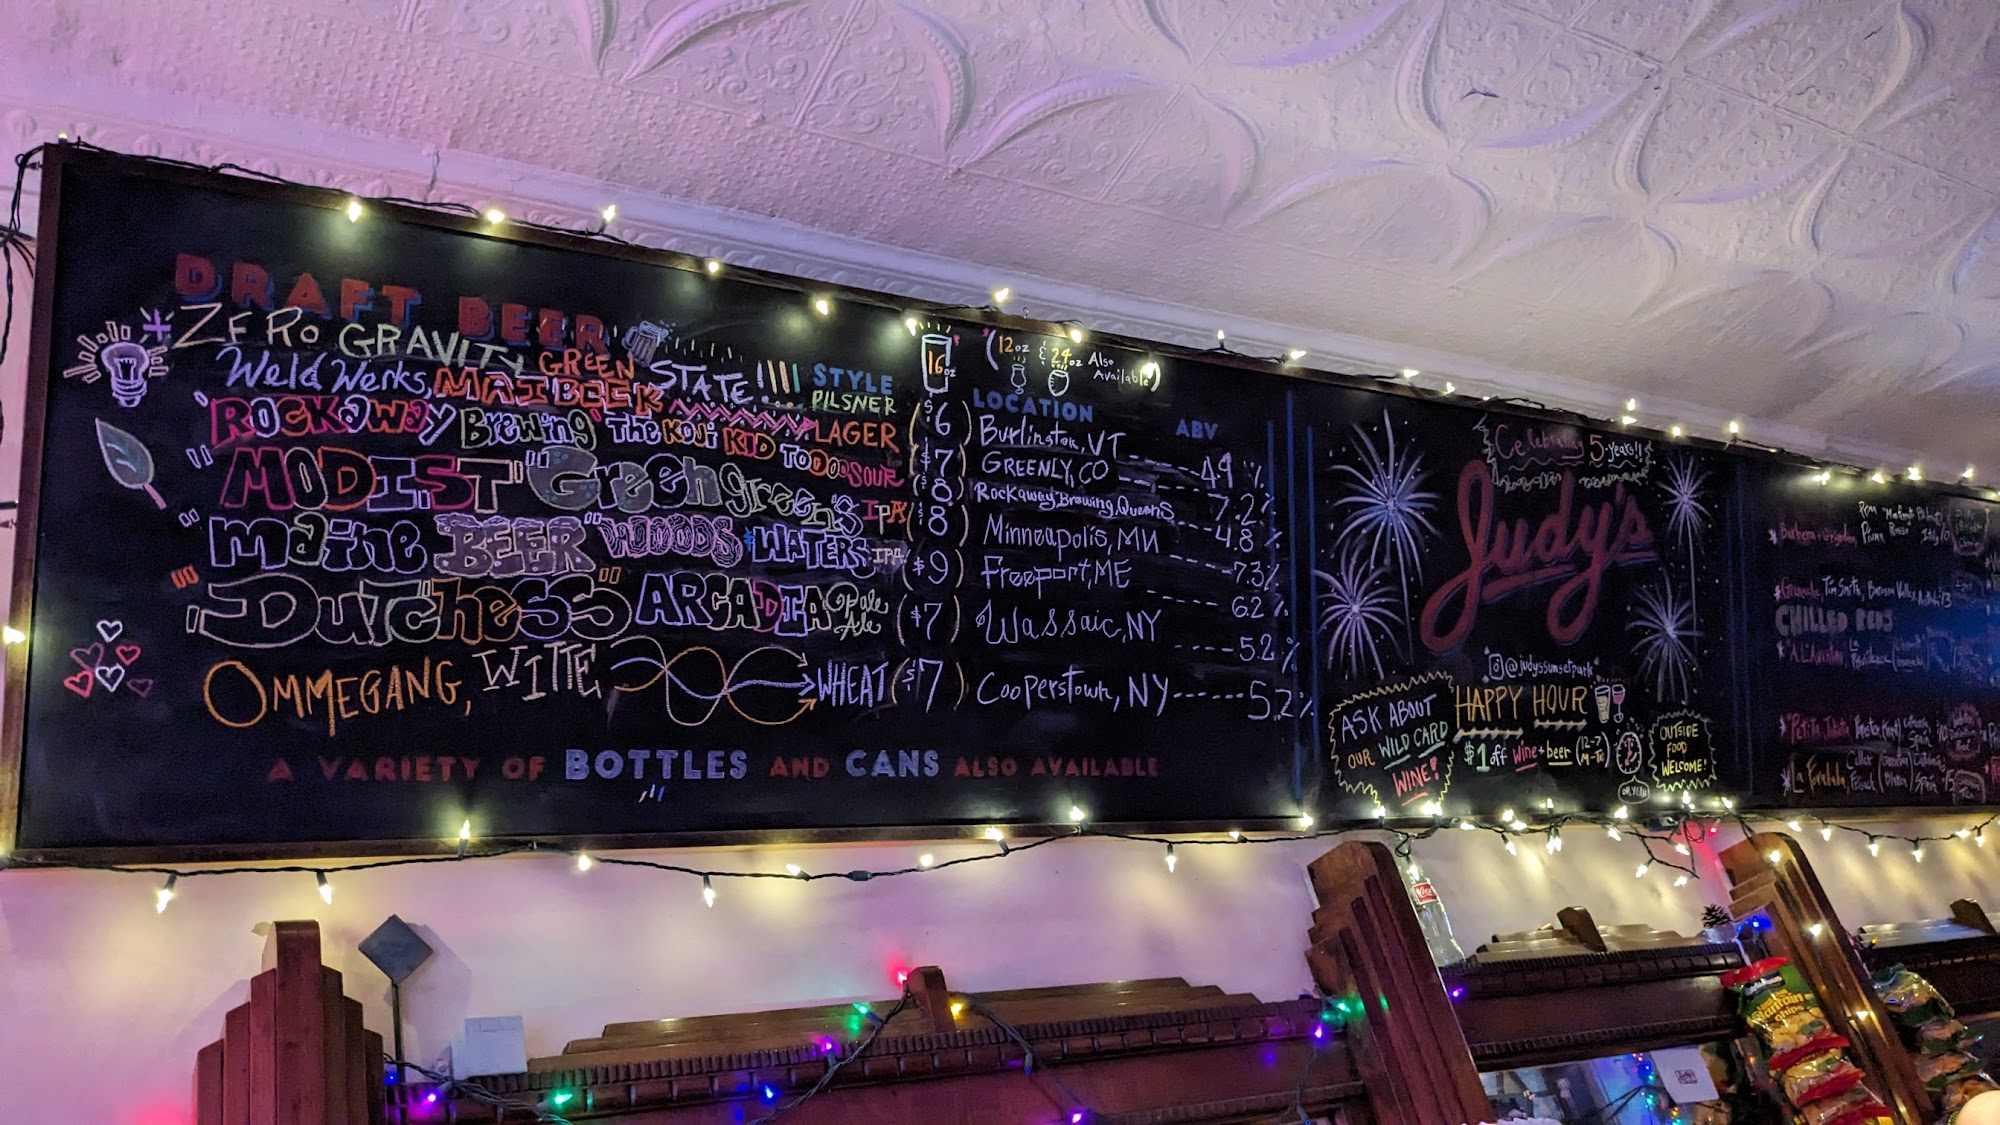 DRAFT BEER
16oz
(12oz & 24oz Also Available)
STYLE LOCATION ABV
ZERO GRAVITY GREEN STATE! PILSNER ($6) Burlington, VT 4.9%
Weld Werks, MAIBECK LAGER ($7) GREENLY, CO 7.2%
ROCKAWAY Brewing The KOJI KID TODOO SOUR ($8) Rockaway Brewing, Queens 4.8%
"MODIST" "Greengreen's IPA ($8) Minneapolis, MN 7.3%
"maine BEER" WOODS & WATERS IPA ($9) Freeport, ME 6.2%
"Dutchess" ARCADIA Pale Ale ($7) Wassaic, NY 5.2%
OMMEGANG, WITTE WHEAT ($7) Cooperstown, NY 5.2%
A VARIETY OF BOTTLES AND CANS ALSO AVAILABLE
Celebrating 5-years!!
Judy's
@judyssunsetpark
ASK ABOUT OUR WILD CARD WINE!
HAPPY HOUR
$1 off wine + beer (12-7 M-Tu)
OH, YEAH
OUTSIDE FOOD WELCOME!
Grenache, Tim Smith, Barossa Valley,
CHILLED REDS